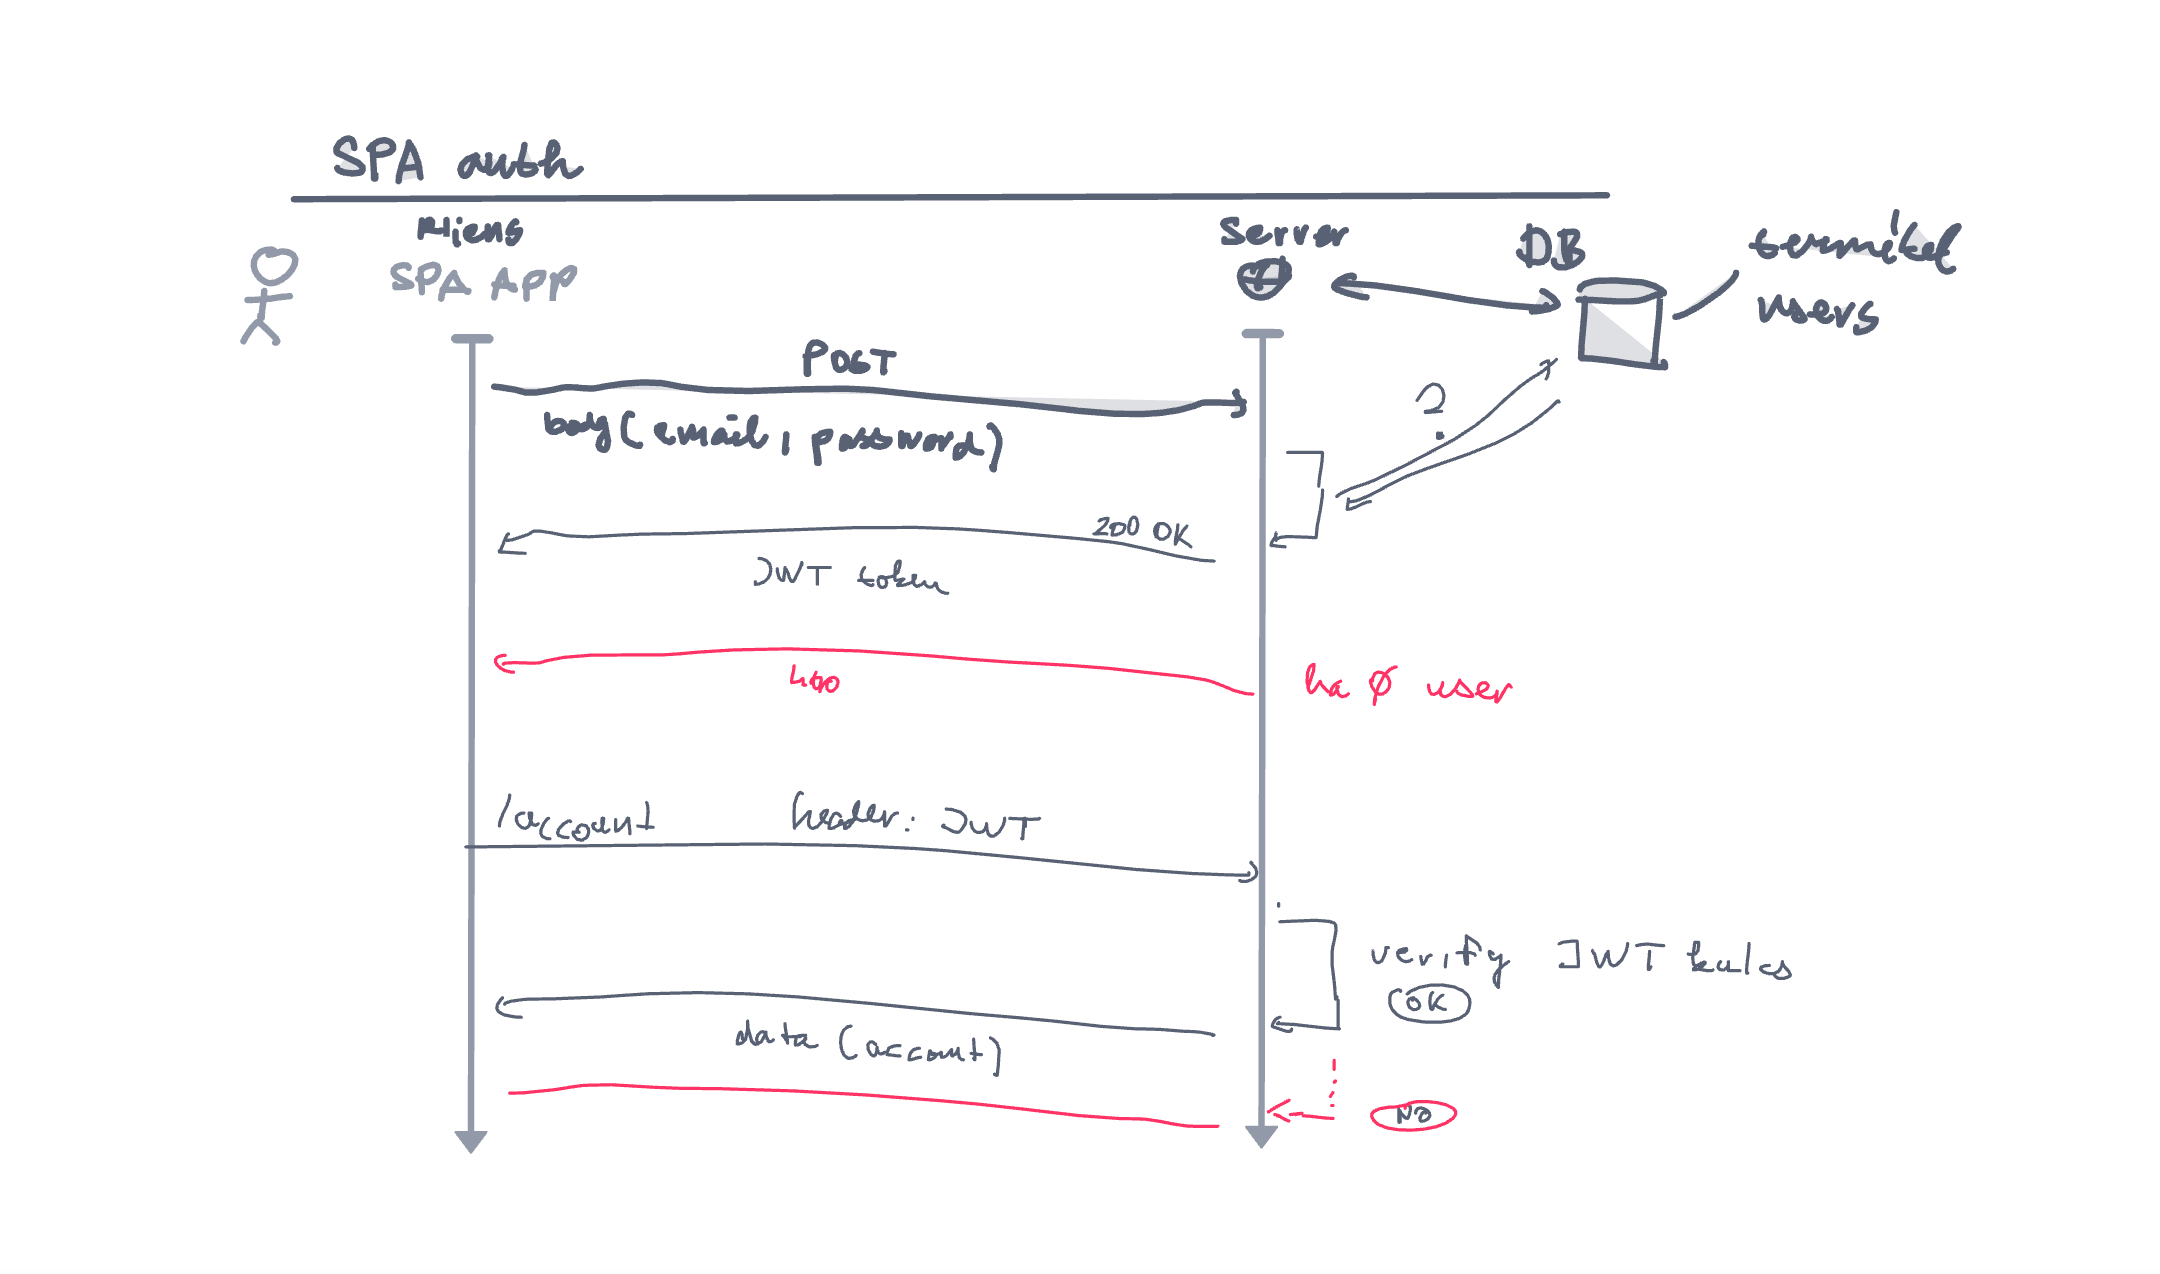 SPA auth
Kliens
SPA APP
Server
DB
termékek
users
POST
body (email, password)
?
200 OK
JWT token
400
ha Ø user
/account
header: JWT
verify JWT kulcs
OK
data (account)
NO